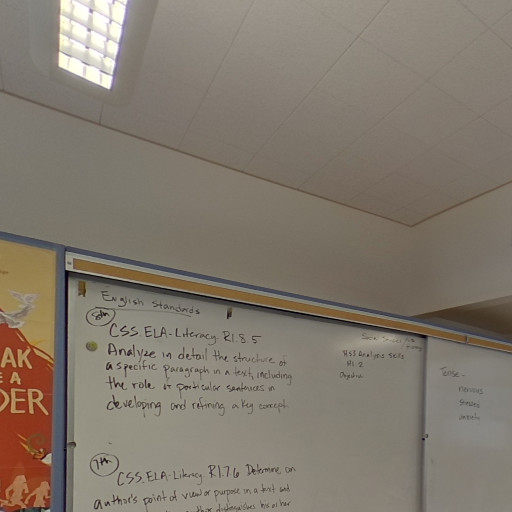 English Standards
8th
CSS.ELA-Literacy RI.8.5
Analyze in detail the structure of
a specific paragraph in a text, including
the role of particular sentences in
developing and refining a key concept.
7th
CSS.ELA-Literacy RI.7.6 Determine an
author's point of view or purpose in a text and
his or her
Social
HSS Analysis Skills
Objective
Tense -
AK
E A
DER